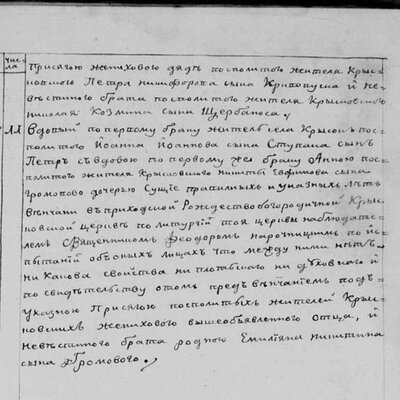 чис
ла
присягою женихового дяди посполитого жителя Крыс
Петра Никифорова сына Крикопуска и не
вестиного брата посполитого жителя Крысовского
Николая Козмина сына Щербаноса
11 Вдовый по первому браку житель села Крысок пос
политого Иоанна Иоаннова сына Ступака сын
Петръ съ вдовою по первому же браку Анною пос
политого жителя Крысовского Никиты Евфимова сына
Громового дочерью Сущие правильныхъ и указныхъ летъ
венчани въ приходской Рождествобогородичной Крыс
ковской церкве по литургии тоя церкви наблюдате
лемъ Священникомъ Феодоромъ по ис
пытании обоюныхъ лицахъ что между ними нетъ
ни какова свойства ни плотского ни духовного и
по свидетельству о томъ предъ венчаниемъ подъ
указною присягою посполитыхъ жителей Крыс
ковскихъ женихового вышеобъявленного отца, и
невестиного брата родного Емилияна Никитина
сына Громового.